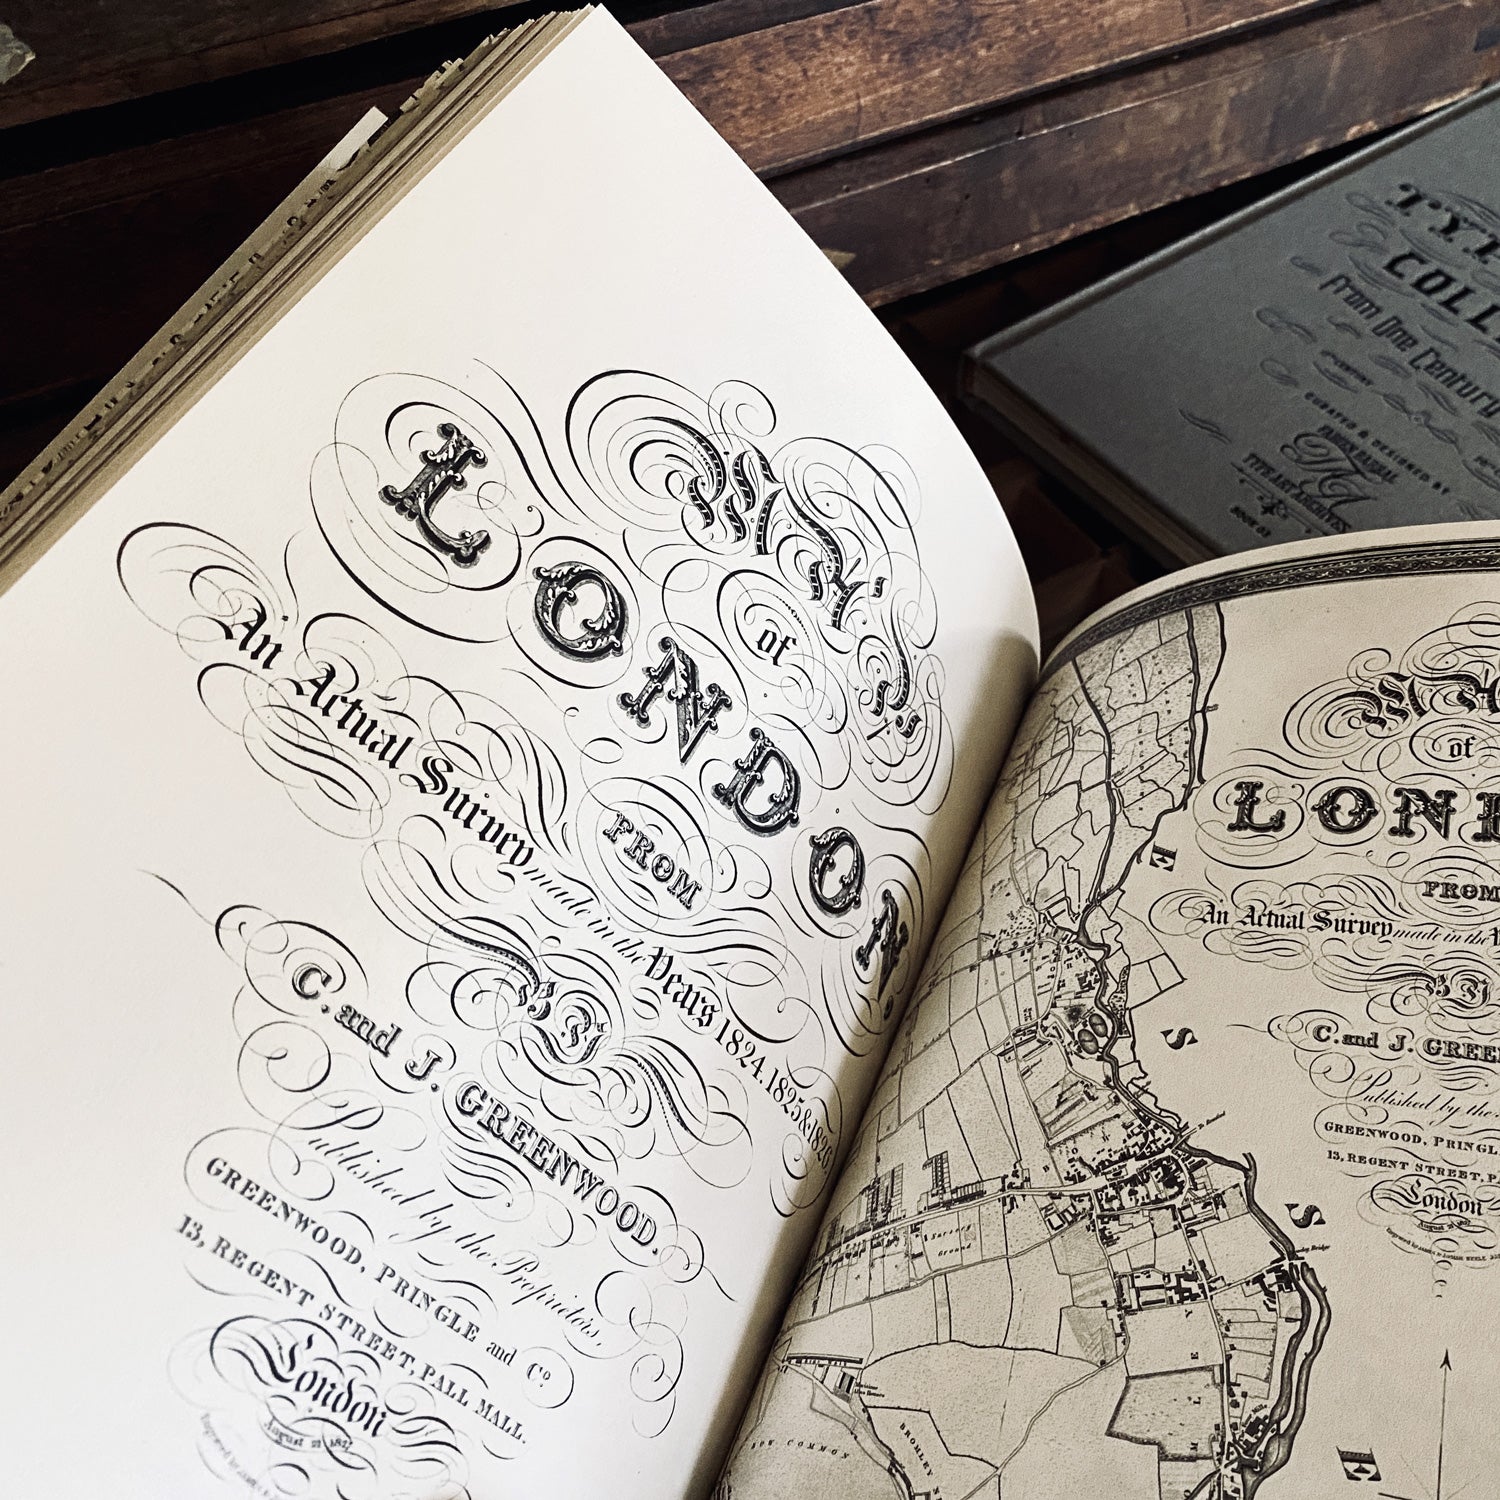 MAP
of
LONDON,
FROM
An Actual Survey made in the Years 1824, 1825 & 1826,
By
C. and J. GREENWOOD.
Published by the Proprietors,
GREENWOOD, PRINGLE and Co.
13, REGENT STREET, PALL MALL.
London
August 21 1827
of
FROM
An Actual Survey made in the
By
C. and J.
Published by the
GREENWOOD,
13, REGENT STREET,
London
August 21 1827
E
S
S
E
Ground
BOW COMMON
BROMLEY
From One Century
CURATED & DESIGNED BY
BOOK 03